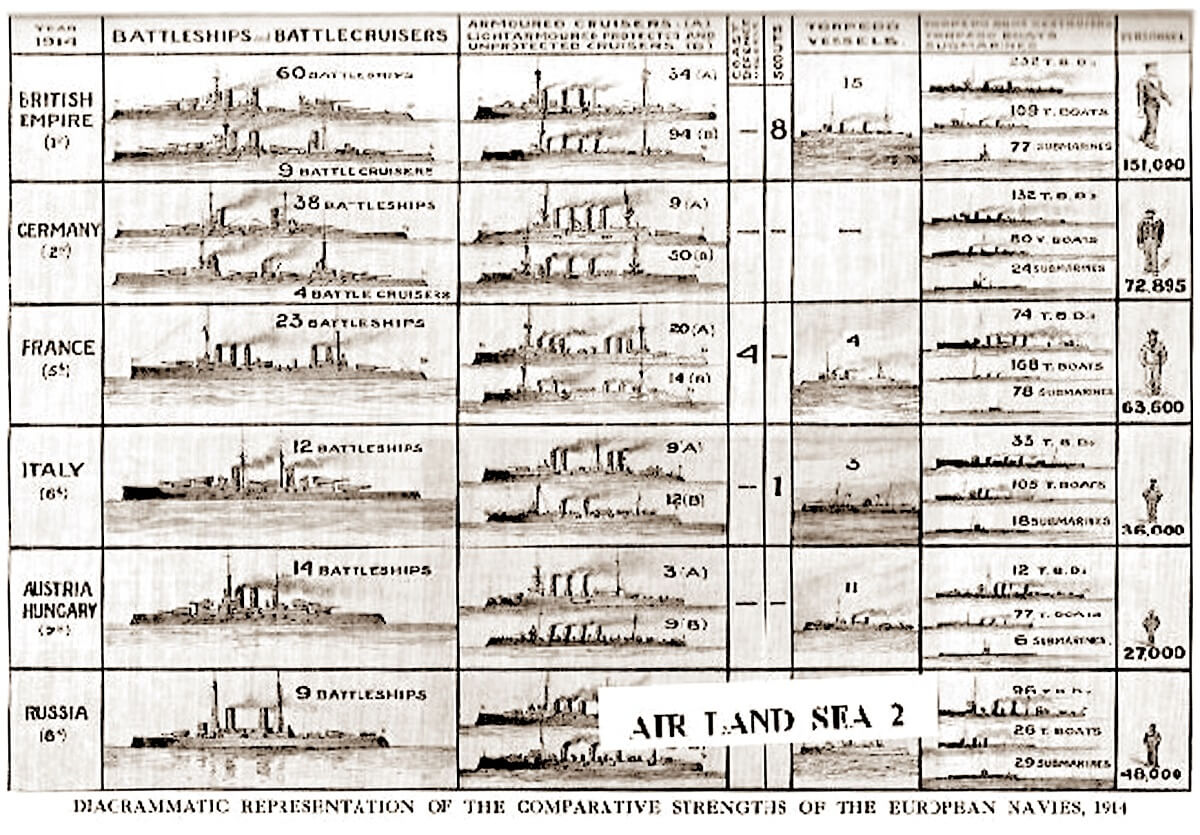 YEAR
1914
BATTLESHIPS and BATTLECRUISERS
ARMOURED CRUISERS. (A)
LIGHT ARMOURED PROTECTED AND
UNPROTECTED CRUISERS. (B)
COAST
DEFENCE
SCOUTS
TORPEDO
VESSELS.
TORPEDO BOAT DESTROYERS
TORPEDO BOATS
SUBMARINES
PERSONNEL
BRITISH
EMPIRE
60 BATTLESHIPS
9 BATTLECRUISERS
34 (A)
94 (B)
–
8
15
232 T.B.D.s
109 T. BOATS
77 SUBMARINES
151,000
GERMANY
38 BATTLESHIPS
4 BATTLE CRUISERS
9 (A)
50 (B)
–
–
–
132 T.B.D.s
80 T. BOATS
24 SUBMARINES
72,895
FRANCE
23 BATTLESHIPS
20 (A)
14 (B)
4
–
4
74 T.B.D.s
168 T. BOATS
78 SUBMARINES
63,600
ITALY
12 BATTLESHIPS
9 (A)
12 (B)
–
1
3
33 T.B.D.s
105 T. BOATS
18 SUBMARINES
36,000
AUSTRIA
HUNGARY
14 BATTLESHIPS
3 (A)
9 (B)
–
–
11
12 T.B.D.s
77 T. BOATS
6 SUBMARINES
27,000
RUSSIA
9 BATTLESHIPS
AIR LAND SEA 2
T.B.D.s
26 T. BOATS
29 SUBMARINES
48,000
DIAGRAMMATIC REPRESENTATION OF THE COMPARATIVE STRENGTHS OF THE EUROPEAN NAVIES, 1914